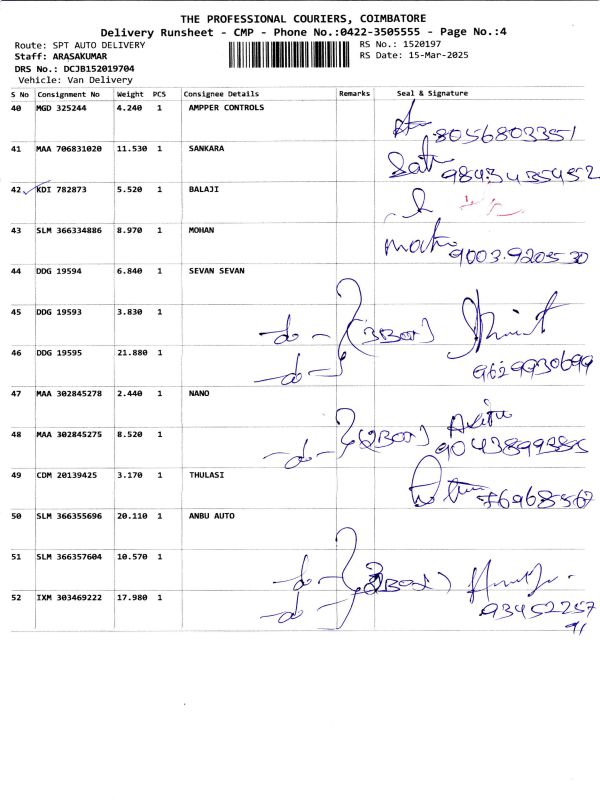 THE PROFESSIONAL COURIERS, COIMBATORE
Delivery Runsheet - CMP - Phone No.:0422-3505555 - Page No.:4
Route: SPT AUTO DELIVERY
RS No.: 1520197
Staff: ARASAKUMAR
RS Date: 15-Mar-2025
DRS No.: DCJB152019704
Vehicle: Van Delivery
S No Consignment No Weight PCS Consignee Details Remarks Seal & Signature
40 MGD 325244 4.240 1 AMPPER CONTROLS
8056803351
41 MAA 706831020 11.530 1 SANKARA
9843435452
42 KDI 782873 5.520 1 BALAJI
43 SLM 366334886 8.970 1 MOHAN
9003920530
44 DDG 19594 6.840 1 SEVAN SEVAN
45 DDG 19593 3.830 1
-do- (3Box)
46 DDG 19595 21.880 1
-do- 9629930699
47 MAA 302845278 2.440 1 NANO
48 MAA 302845275 8.520 1
-do- (2Box) 9043899385
49 CDM 20139425 3.170 1 THULASI
50 SLM 366355696 20.110 1 ANBU AUTO
51 SLM 366357604 10.570 1
-do-
52 IXM 303469222 17.980 1
-do- 93452257
91